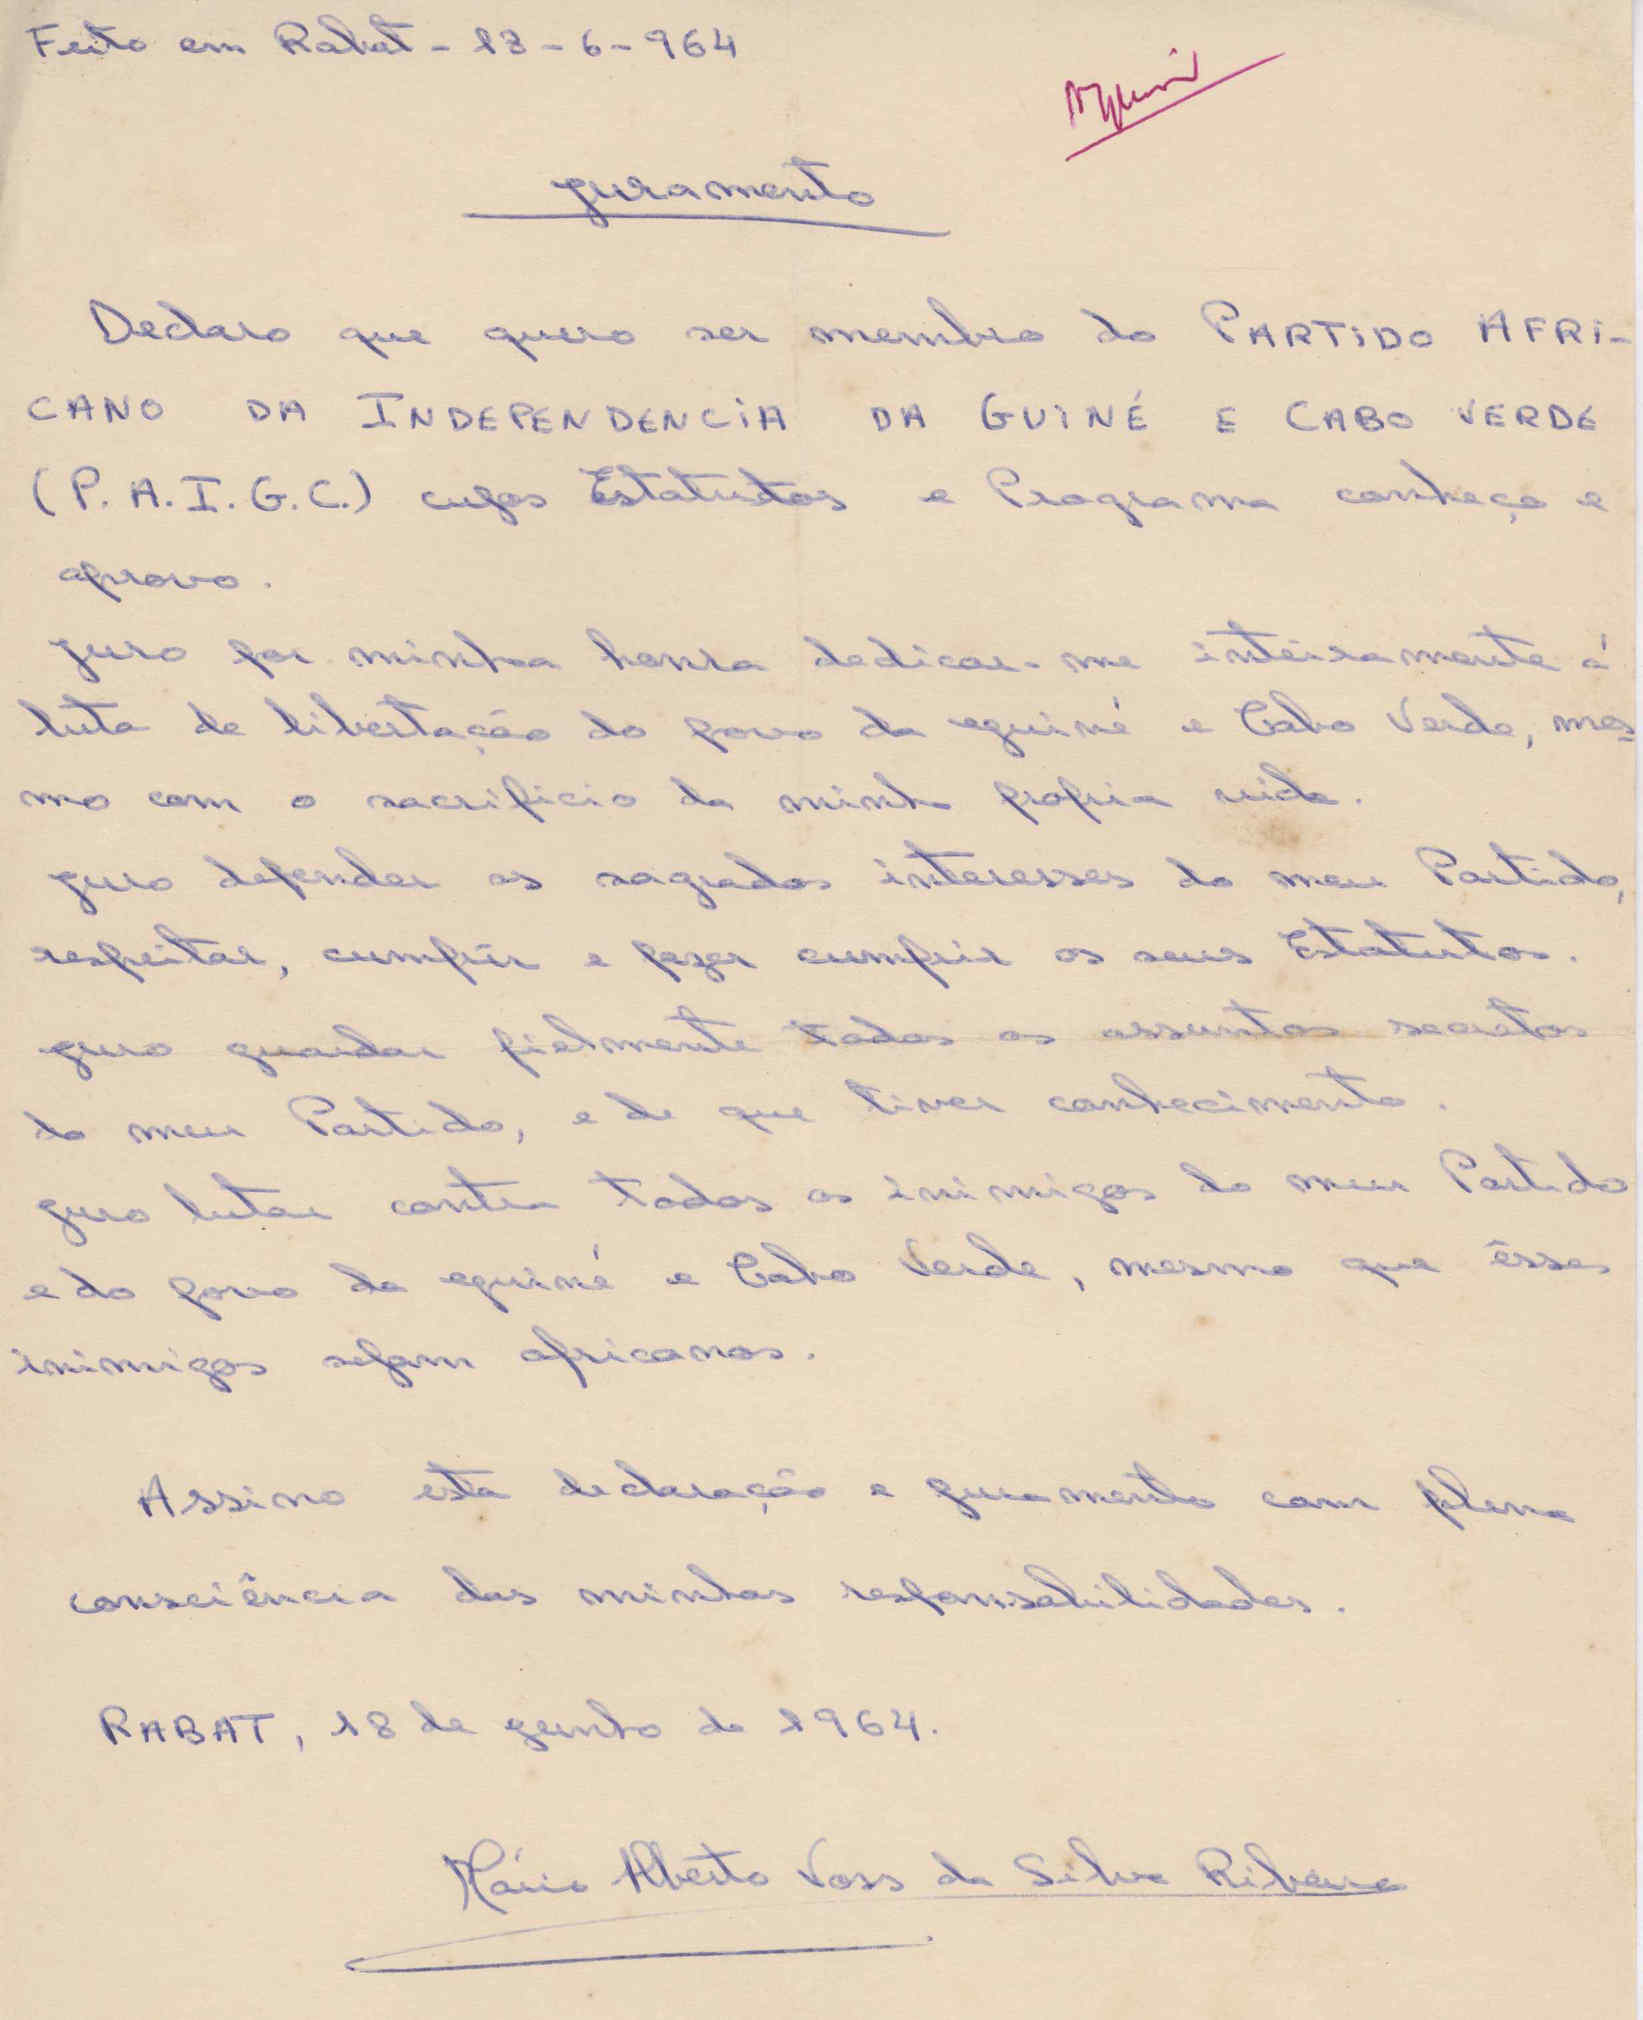 Feito em Rabat - 18 - 6 - 964
Juramento
Declaro que quero ser membro do PARTIDO AFRI-
CANO DA INDEPENDENCIA DA GUINÉ E CABO VERDE
(P. A. I. G. C.) cujos Estatutos e Programa conheço e
aprovo.
Juro por minha honra dedicar-me inteiramente á
luta de libertação do povo da guiné e Cabo Verde, mes-
mo com o sacrificio da minha propria vida.
Juro defender os sagrados interesses do meu Partido,
respeitar, cumprir e fazer cumprir os seus Estatutos.
Juro guardar fielmente todos os assuntos secretos
do meu Partido, e de que tiver conhecimento.
Juro lutar contra todos os inimigos do meu Partido
e do povo da guiné e Cabo Verde, mesmo que êsses
inimigos sejam africanos.
Assino esta declaração e juramento com plena
consciência das minhas responsabilidades.
RABAT, 18 de junho de 1964.
Mário Alberto Voss da Silva Ribeiro